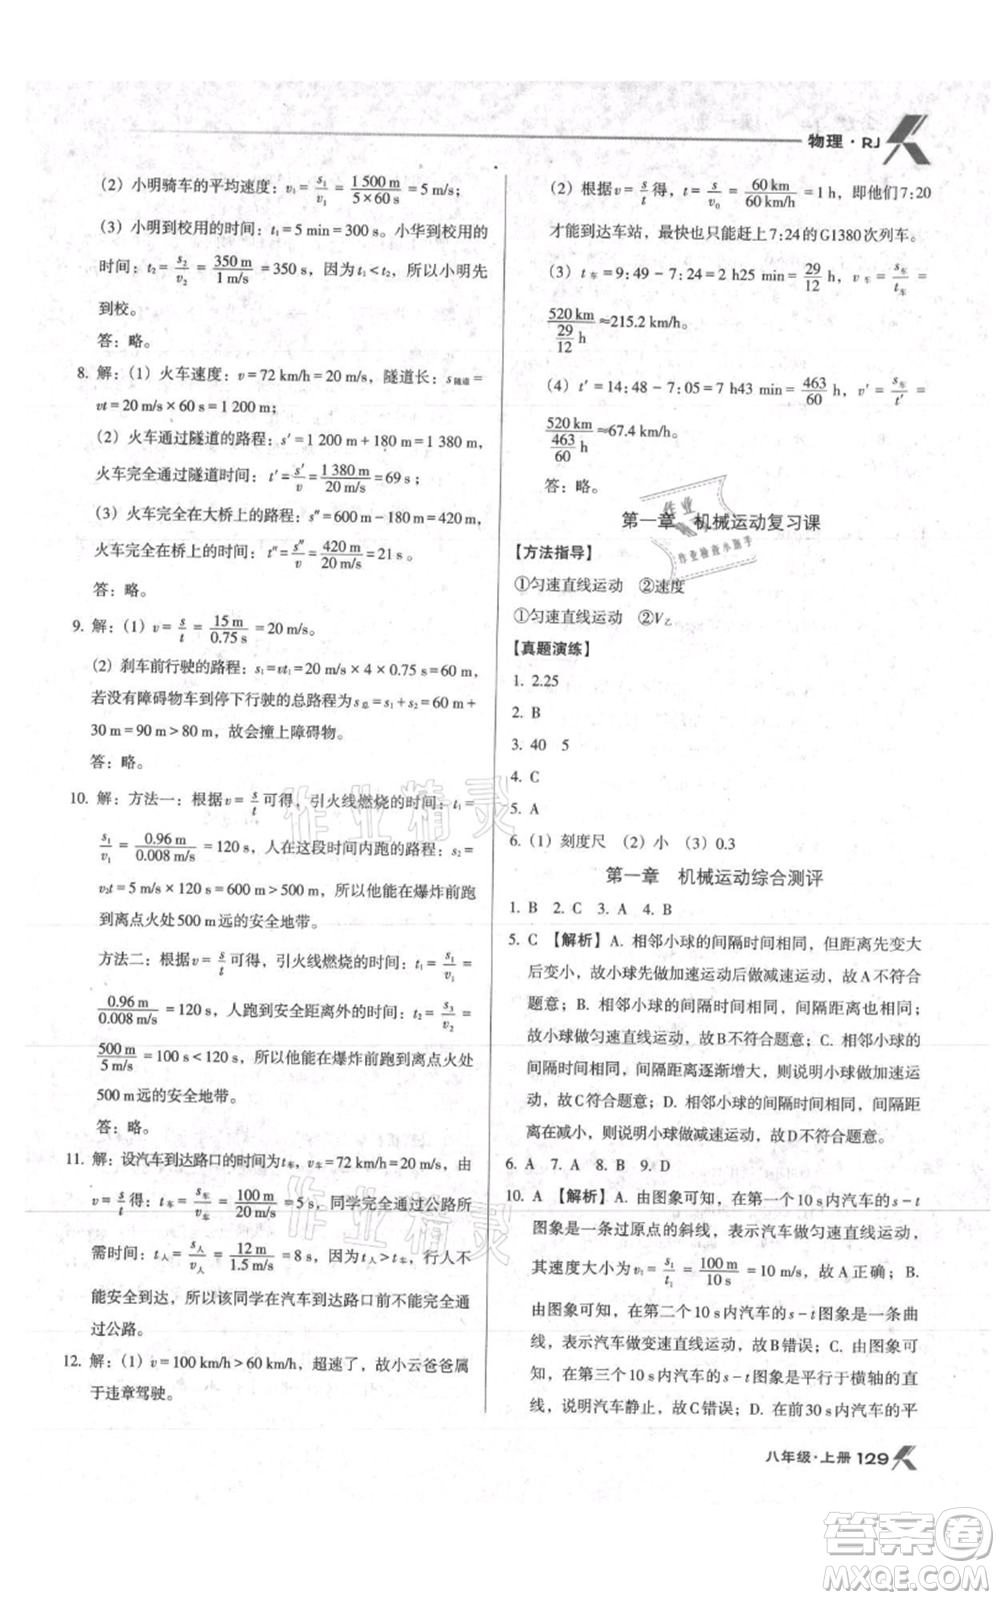 物理·RJ
(2) 小明骑车的平均速度：v₁ = s₁/v₁ = 1 500 m/5×60 s = 5 m/s；
(3) 小明到校用的时间：t₁ = 5 min = 300 s。小华到校用的
时间：t₂ = s₂/v₂ = 350 m/1 m/s = 350 s，因为 t₁ < t₂，所以小明先
到校。
答：略。
8. 解：(1) 火车速度：v = 72 km/h = 20 m/s，隧道长：s隧道 =
vt = 20 m/s × 60 s = 1 200 m；
(2) 火车通过隧道的路程：s′ = 1 200 m + 180 m = 1 380 m，
火车完全通过隧道时间：t′ = s′/v = 1 380 m/20 m/s = 69 s；
(3) 火车完全在大桥上的路程：s″ = 600 m - 180 m = 420 m，
火车完全在桥上的时间：t″ = s″/v = 420 m/20 m/s = 21 s。
答：略。
9. 解：(1) v = s/t = 15 m/0.75 s = 20 m/s。
(2) 刹车前行驶的路程：s₁ = vt₁ = 20 m/s × 4 × 0.75 s = 60 m，
若没有障碍物车到停下行驶的总路程为 s总 = s₁ + s₂ = 60 m +
30 m = 90 m > 80 m，故会撞上障碍物。
答：略。
10. 解：方法一：根据 v = s/t 可得，引火线燃烧的时间：t₁ =
s₁/v₁ = 0.96 m/0.008 m/s = 120 s，人在这段时间内跑的路程：s₂ =
v₂t = 5 m/s × 120 s = 600 m > 500 m，所以能在爆炸前跑
到离点火处 500 m 远的安全地带。
方法二：根据 v = s/t 可得，引火线燃烧的时间：t₁ = s₁/v₁ =
0.96 m/0.008 m/s = 120 s，人跑到安全距离外的时间：t₂ = s₃/v₂ =
500 m/5 m/s = 100 s < 120 s，所以能在爆炸前跑到离点火处
500 m 远的安全地带。
答：略。
11. 解：设汽车到达路口的时间为 t车，v车 = 72 km/h = 20 m/s，由
v = s/t 得：t车 = s车/v车 = 100 m/20 m/s = 5 s，同学完全通过公路所
需时间：t人 = s人/v人 = 12 m/1.5 m/s = 8 s，因为 t人 > t车，行人不
能安全到达，所以该同学在汽车到达路口前不能完全通
过公路。
12. 解：(1) v = 100 km/h > 60 km/h，超速了，故小云爸爸属
于违章驾驶。
(2) 根据 v = s/t 得，t = s/v₀ = 60 km/60 km/h = 1 h，即他们 7:20
才能到达车站，最快也只能赶上 7:24 的 G1380 次列车。
(3) t车 = 9:49 - 7:24 = 2 h25 min = 29/12 h，v车 = s车/t车 =
520 km/29/12 h ≈ 215.2 km/h。
(4) t′ = 14:48 - 7:05 = 7 h43 min = 463/60 h，v′ = s车/t′ =
520 km/463/60 h ≈ 67.4 km/h。
答：略。
第一章 机械运动复习课
【方法指导】
①匀速直线运动 ②速度
①匀速直线运动 ②V乙
【真题演练】
1. 2.25
2. B
3. 40 5
4. C
5. A
6. (1) 刻度尺 (2) 小 (3) 0.3
第一章 机械运动综合测评
1. B 2. C 3. A 4. B
5. C 【解析】A. 相邻小球的间隔时间相同，但距离先变大
后变小，故小球先做加速运动后做减速运动，故 A 不符合
题意；B. 相邻小球的间隔时间相同，间隔距离也相同，
故小球做匀速直线运动，故 B 不符合题意；C. 相邻小球的
间隔时间相同，间隔距离逐渐增大，所以说明小球的速度
是逐渐增大的，故 C 符合题意；D. 相邻小球的间隔距离
在减小，则说明小球做减速运动，故 D 不符合题意。
6. A 7. A 8. B 9. D
10. A 【解析】A. 由图象可知，在第一个 10 s 内汽车的 s-t
图象是一条过原点的斜线，表示汽车做匀速直线运动，
其速度大小为 v₁ = s₁/t₁ = 100 m/10 s = 10 m/s，故 A 正确；B.
由图象可知，在第二个 10 s 内汽车的 s-t 图象是一条曲
线，表示汽车做变速直线运动，故 B 错误；C. 由图象可知，
在第三个 10 s 内汽车的 s-t 图象是平行于横轴的直
线，说明汽车静止，故 C 错误；D. 在前 30 s 内汽车的平
八年级·上册 129
作业精灵
作业精灵
作业
作业检查小助手
答案圈
MXQE.COM